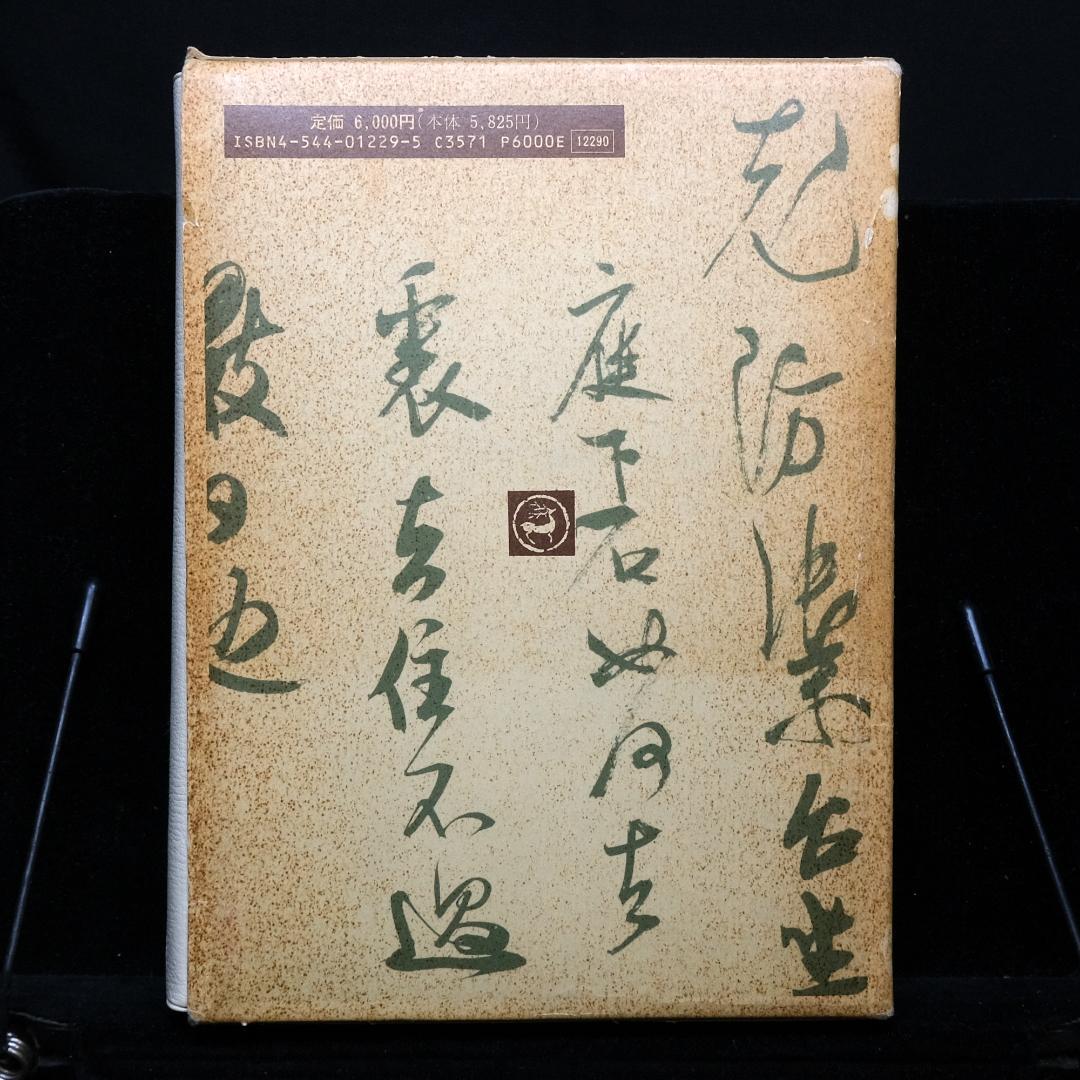 定価 6,000円(本体 5,825円)
ISBN4-544-01229-5 C3571 P6000E 12290
防 台坐
庭下石如何去
裏去住不過
日边